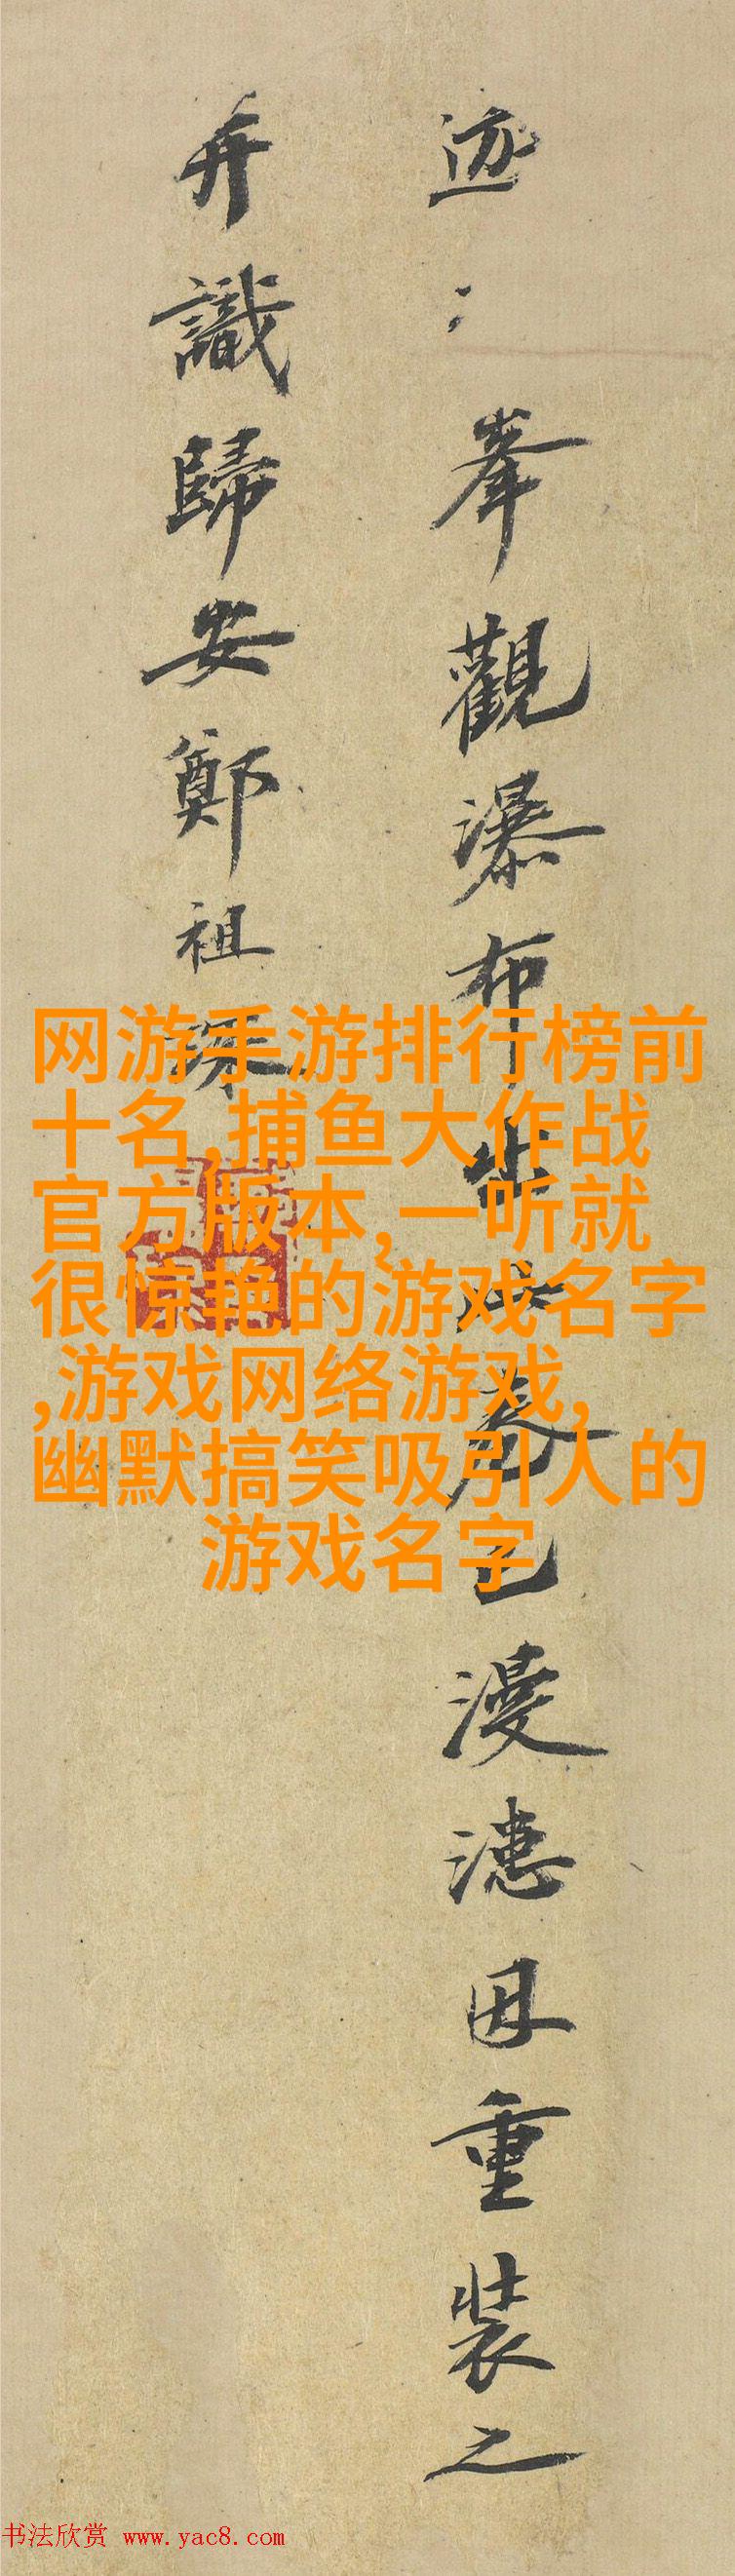 迹峯觀瀑布卷已漫漶因重裝之
并識歸安鄭祖琛
网游手游排行榜前
十名,捕鱼大作战
官方版本,一听就
很惊艳的游戏名字
,游戏网络游戏,
幽默搞笑吸引人的
游戏名字
书法欣赏 www.yac8.com